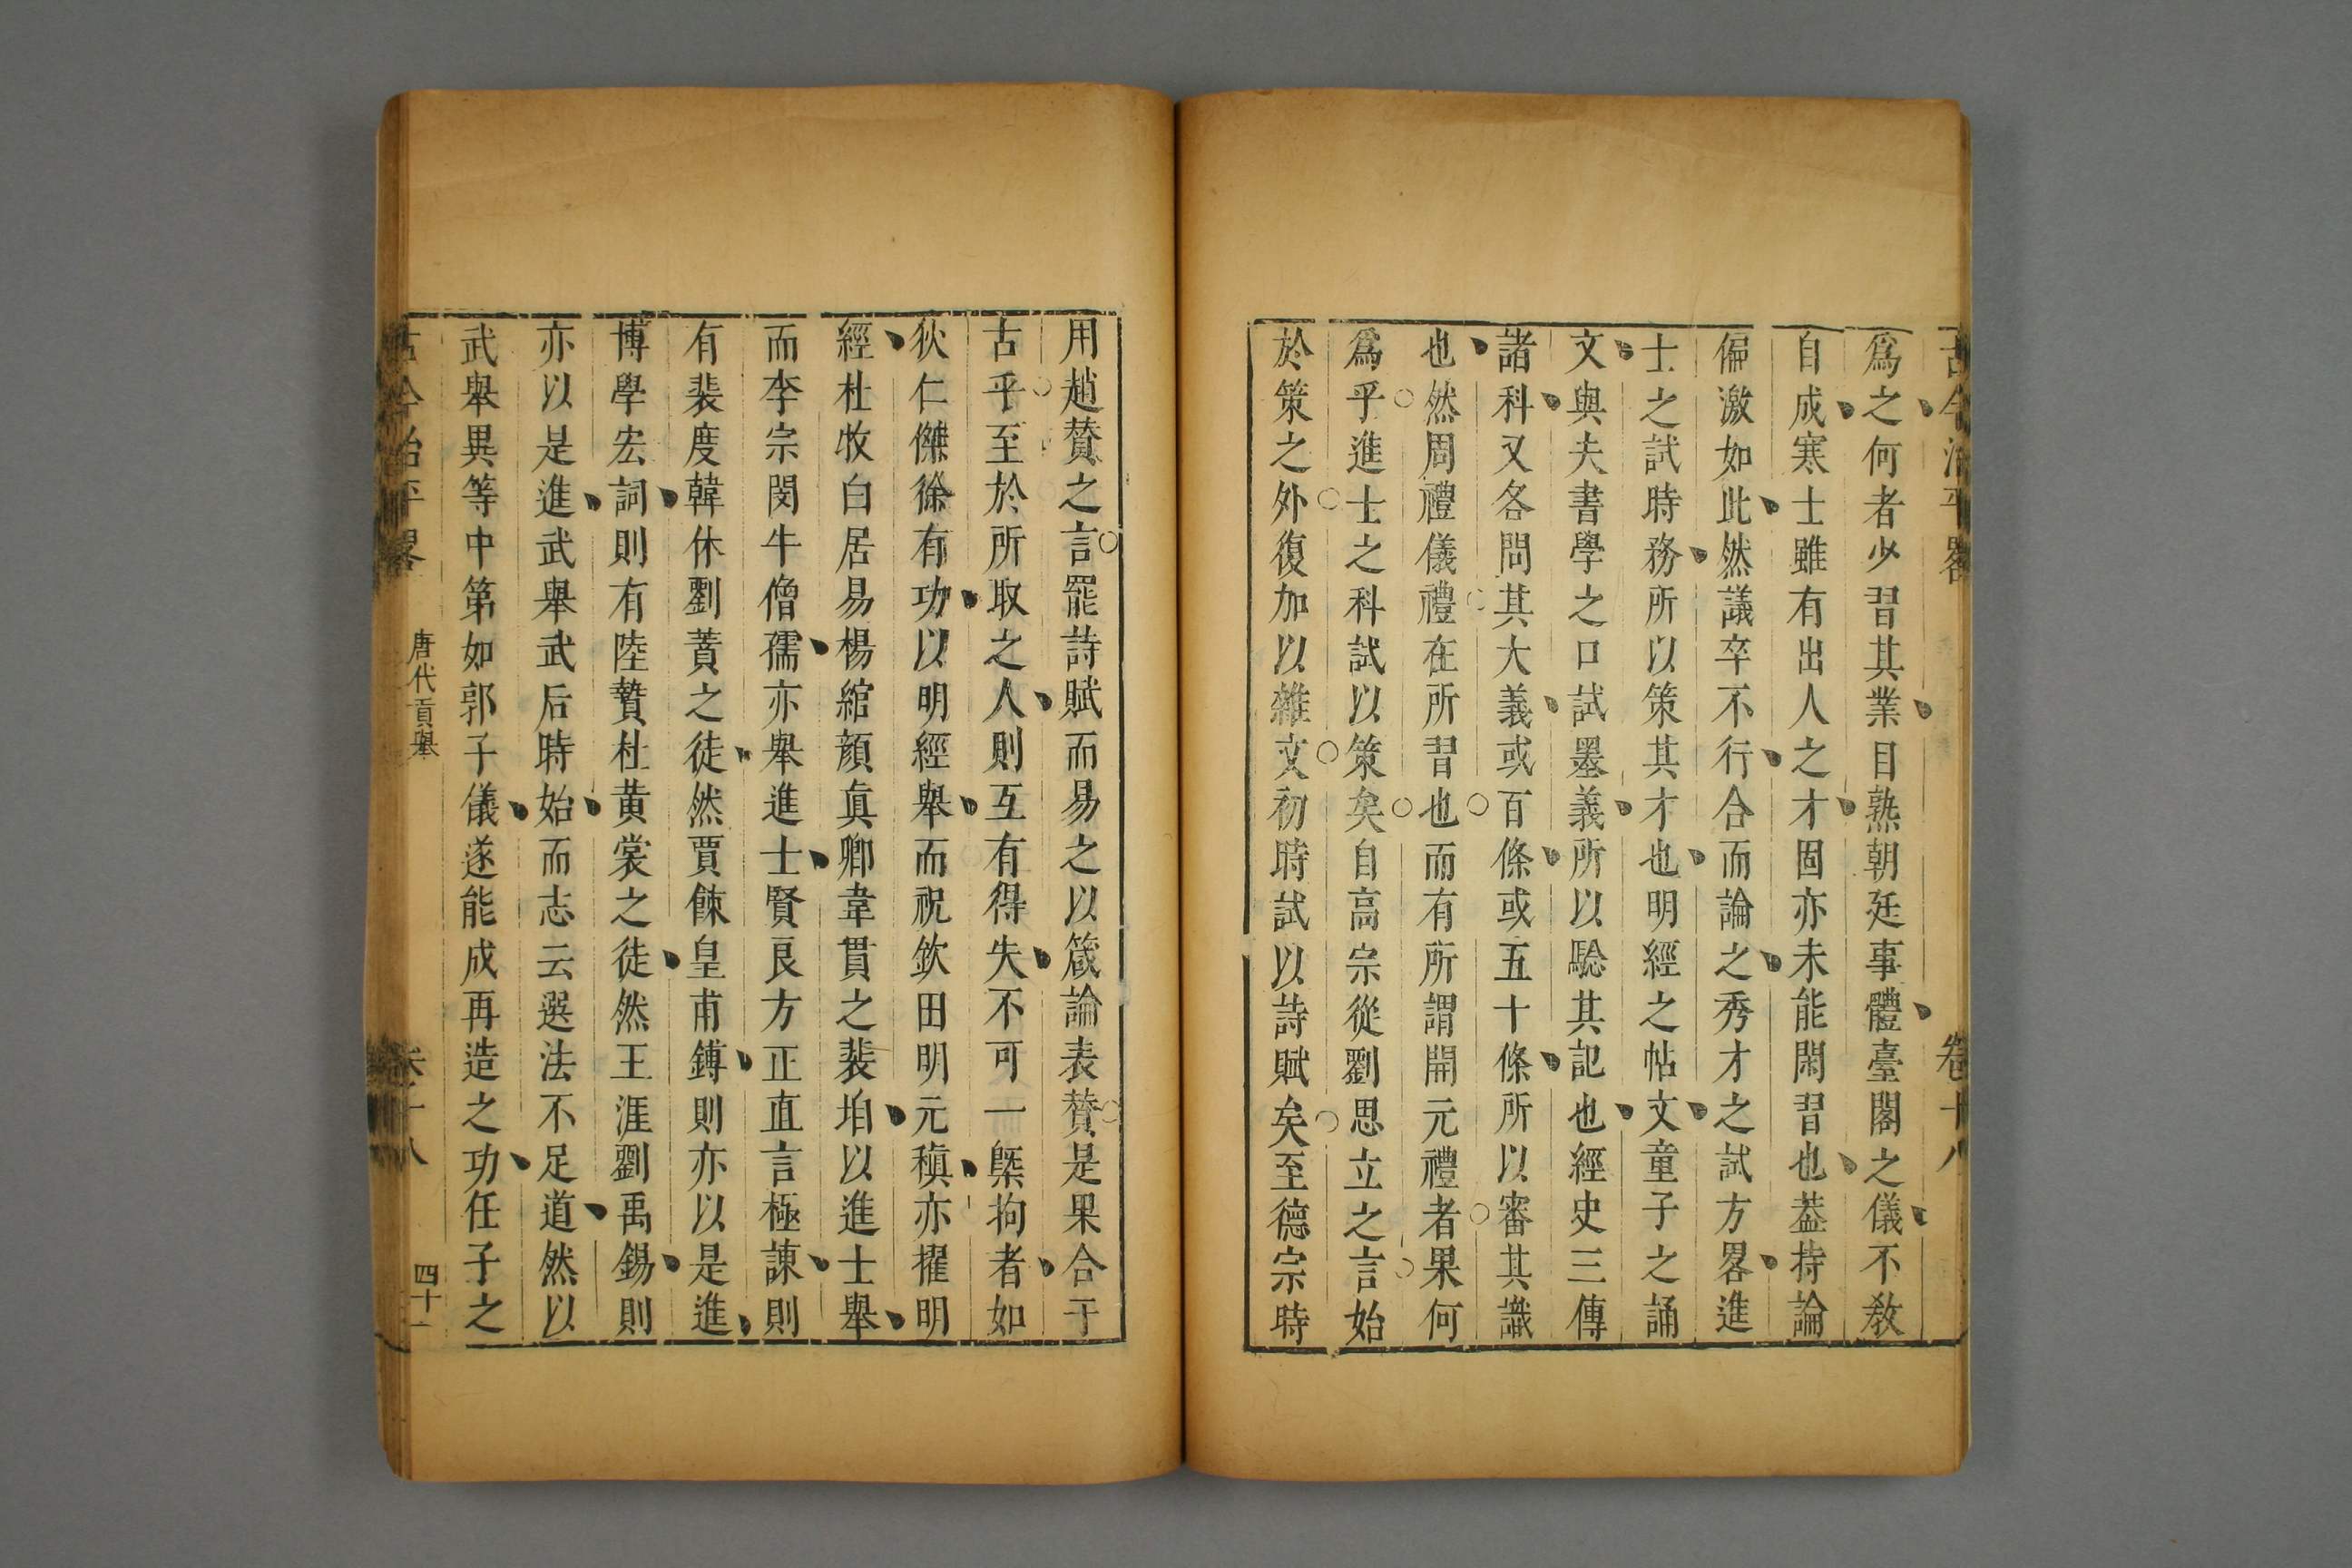 古今治平畧 卷十八
爲之何者少習其業目熟朝廷事體臺閣之儀不敎
自成寒士雖有出人之才固亦未能閑習也葢持論
偏激如此然議卒不行合而論之秀才之試方畧進
士之試時務所以策其才也明經之帖文童子之誦
文與夫書學之口試墨義所以騐其記也經史三傳
諸科又各問其大義或百條或五十條所以審其識
也然周禮儀禮在所習也而有所謂開元禮者果何
爲乎進士之科試以策矣自高宗從劉思立之言始
於策之外復加以雜文初時試以詩賦矣至德宗時
用趙贊之言罷詩賦而易之以箴論表贊是果合于
古乎至於所取之人則互有得失不可一槩拘者如
狄仁傑徐有功以明經舉而祝欽田明元稹亦擢明
經杜牧白居易楊綰顔眞卿韋貫之裴垍以進士舉
而李宗閔牛僧孺亦舉進士賢良方正直言極諫則
有裴度韓休劉蕡之徒然賈餗皇甫鎛則亦以是進
博學宏詞則有陸贄杜黄裳之徒然王涯劉禹錫則
亦以是進武舉武后時始而志云選法不足道然以
武舉異等中第如郭子儀遂能成再造之功任子之
古今治平畧 唐代貢舉 卷十八 四十一